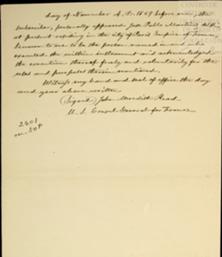 day of November A.D. 1869 before me, the
subscriber, personally appeared
at present residing in the city of Paris Empire of France,
known to me to be the person named in and who
executed the within settlement and acknowledged
the execution thereof freely and voluntarily for the
uses and purposes therein mentioned.
Witness my hand and seal of office the day
and year above written
(Signed) John Meredith Read
U. S. Consul General for France